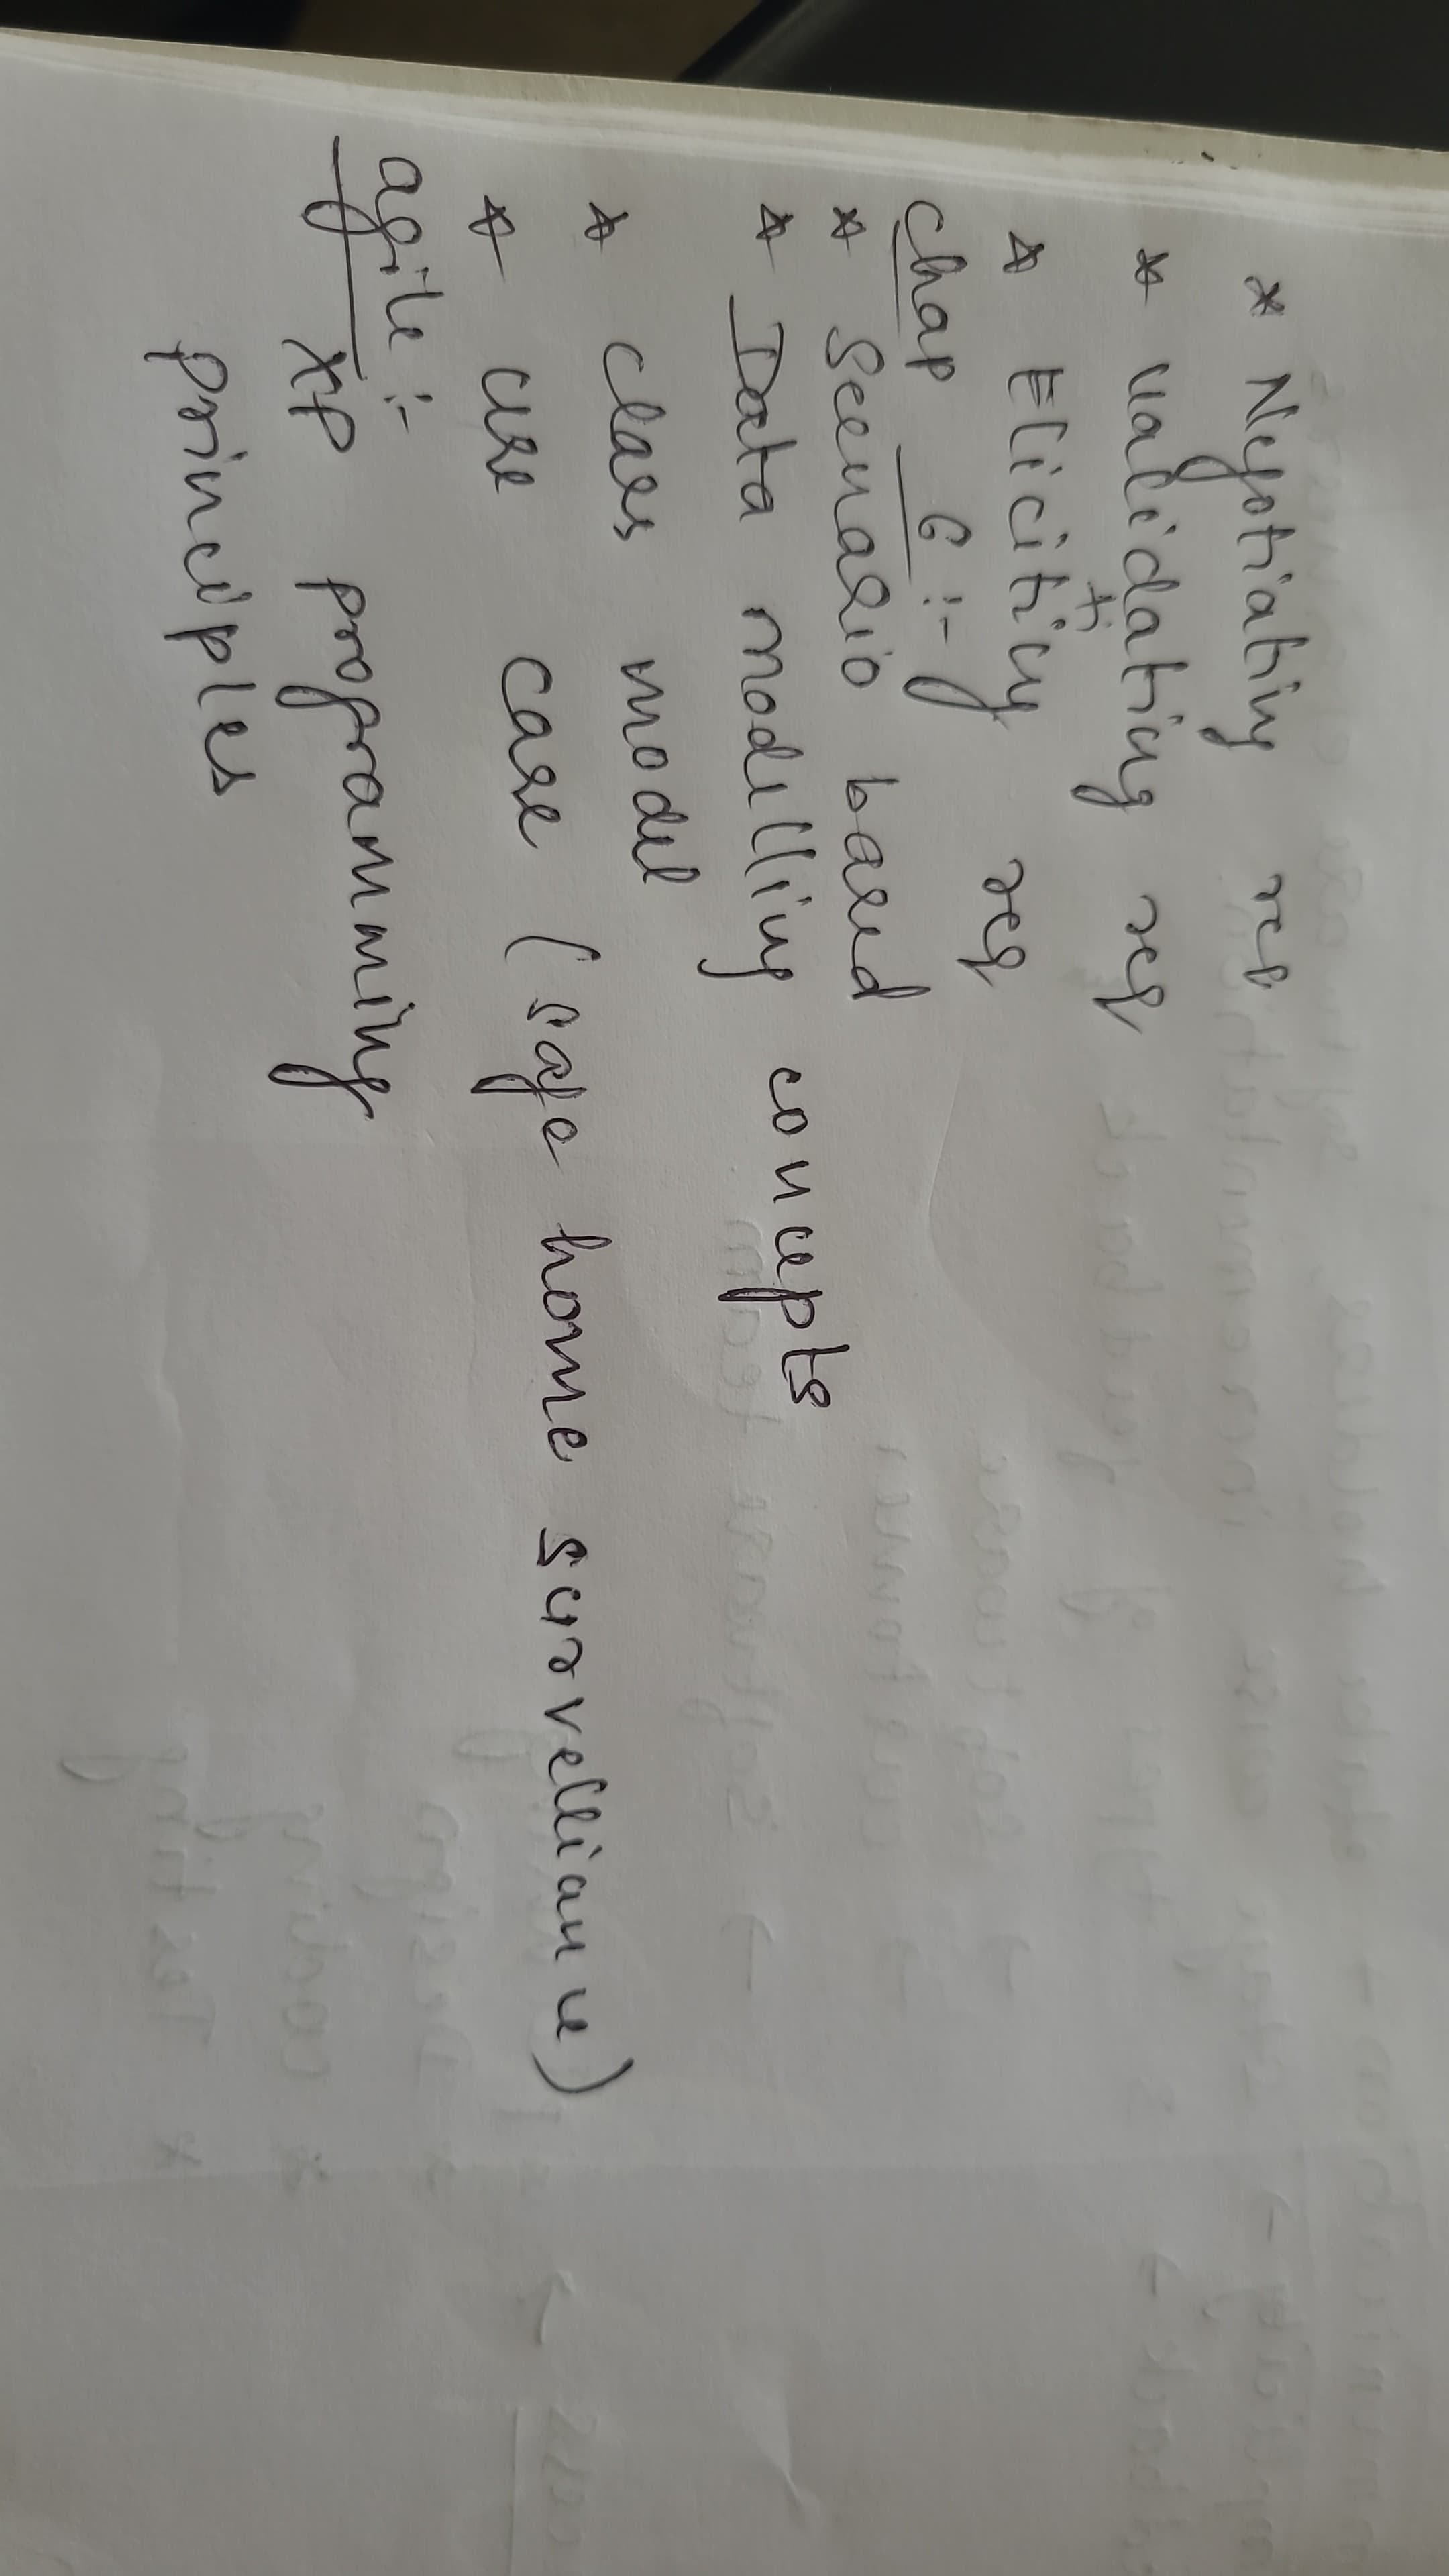 * Negotiating req
* validating req
ti
* Eliciticy req
chap 6 :-
* Scenario based
* Data modelling concepts
* class model
* use case (safe home survelliance)
agile :-
XP programming
principles